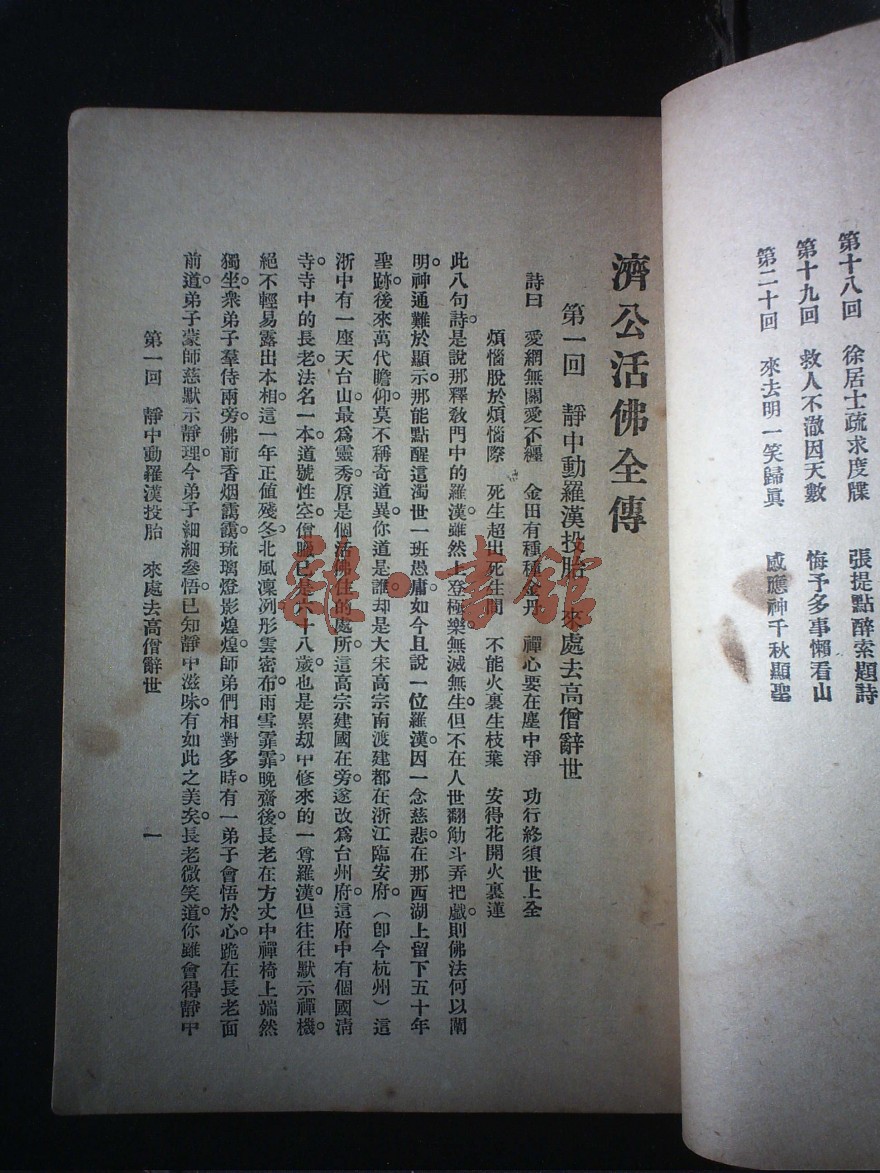 第十八回　徐居士疏求度牒　張提點醉索題詩
第十九回　救人不澈因天數　悔予多事懶看山
第二十回　來去明一笑歸眞　感應神千秋顯聖
濟公活佛全傳
第一回　靜中動羅漢投胎　來處去高僧辭世
詩曰　愛網無關愛不纏　金田有種種金丹　禪心要在塵中淨　功行終須世上全
煩惱脫於煩惱際　死生超出死生間　不能火裏生枝葉　安得花開火裏蓮
此八句詩。是說那釋敎門中的羅漢。雖然上登極樂。無滅無生。但不在人世翻觔斗弄把戲。則佛法何以闡
明。神通難於顯示。那能點醒這濁世一班愚庸。如今且說一位羅漢。因一念慈悲。在那西湖上留下五十年
聖跡。後來萬代瞻仰。莫不稱奇道異。你道是誰。却是大宋高宗南渡。建都在浙江臨安府。（卽今杭州）這
浙中有一座天台山。最爲靈秀。原是個活佛住的處所。這高宗建國在旁。遂改爲台州府。這府中有個國淸
寺。寺中的長老。法名一本。道號性空。僧臘已是六十八歲。也是累刼中修來的一尊羅漢。但往往默示禪機。
絕不輕易露出本相。這一年正値殘冬。北風凜冽。彤雲密布。雨雪霏霏。晚齋後。長老在方丈中禪椅上端然
獨坐。衆弟子羣侍兩旁。佛前香烟靄靄。琉璃燈影煌煌。師弟們相對多時。有一弟子會悟於心。跪在長老面
前道。弟子蒙師慈。默示靜理。今弟子細細參悟。已知靜中滋味。有如此之美矣。長老微笑道。你雖會得靜中
第一回　靜中動羅漢投胎　來處去高僧辭世　一
雜·書館